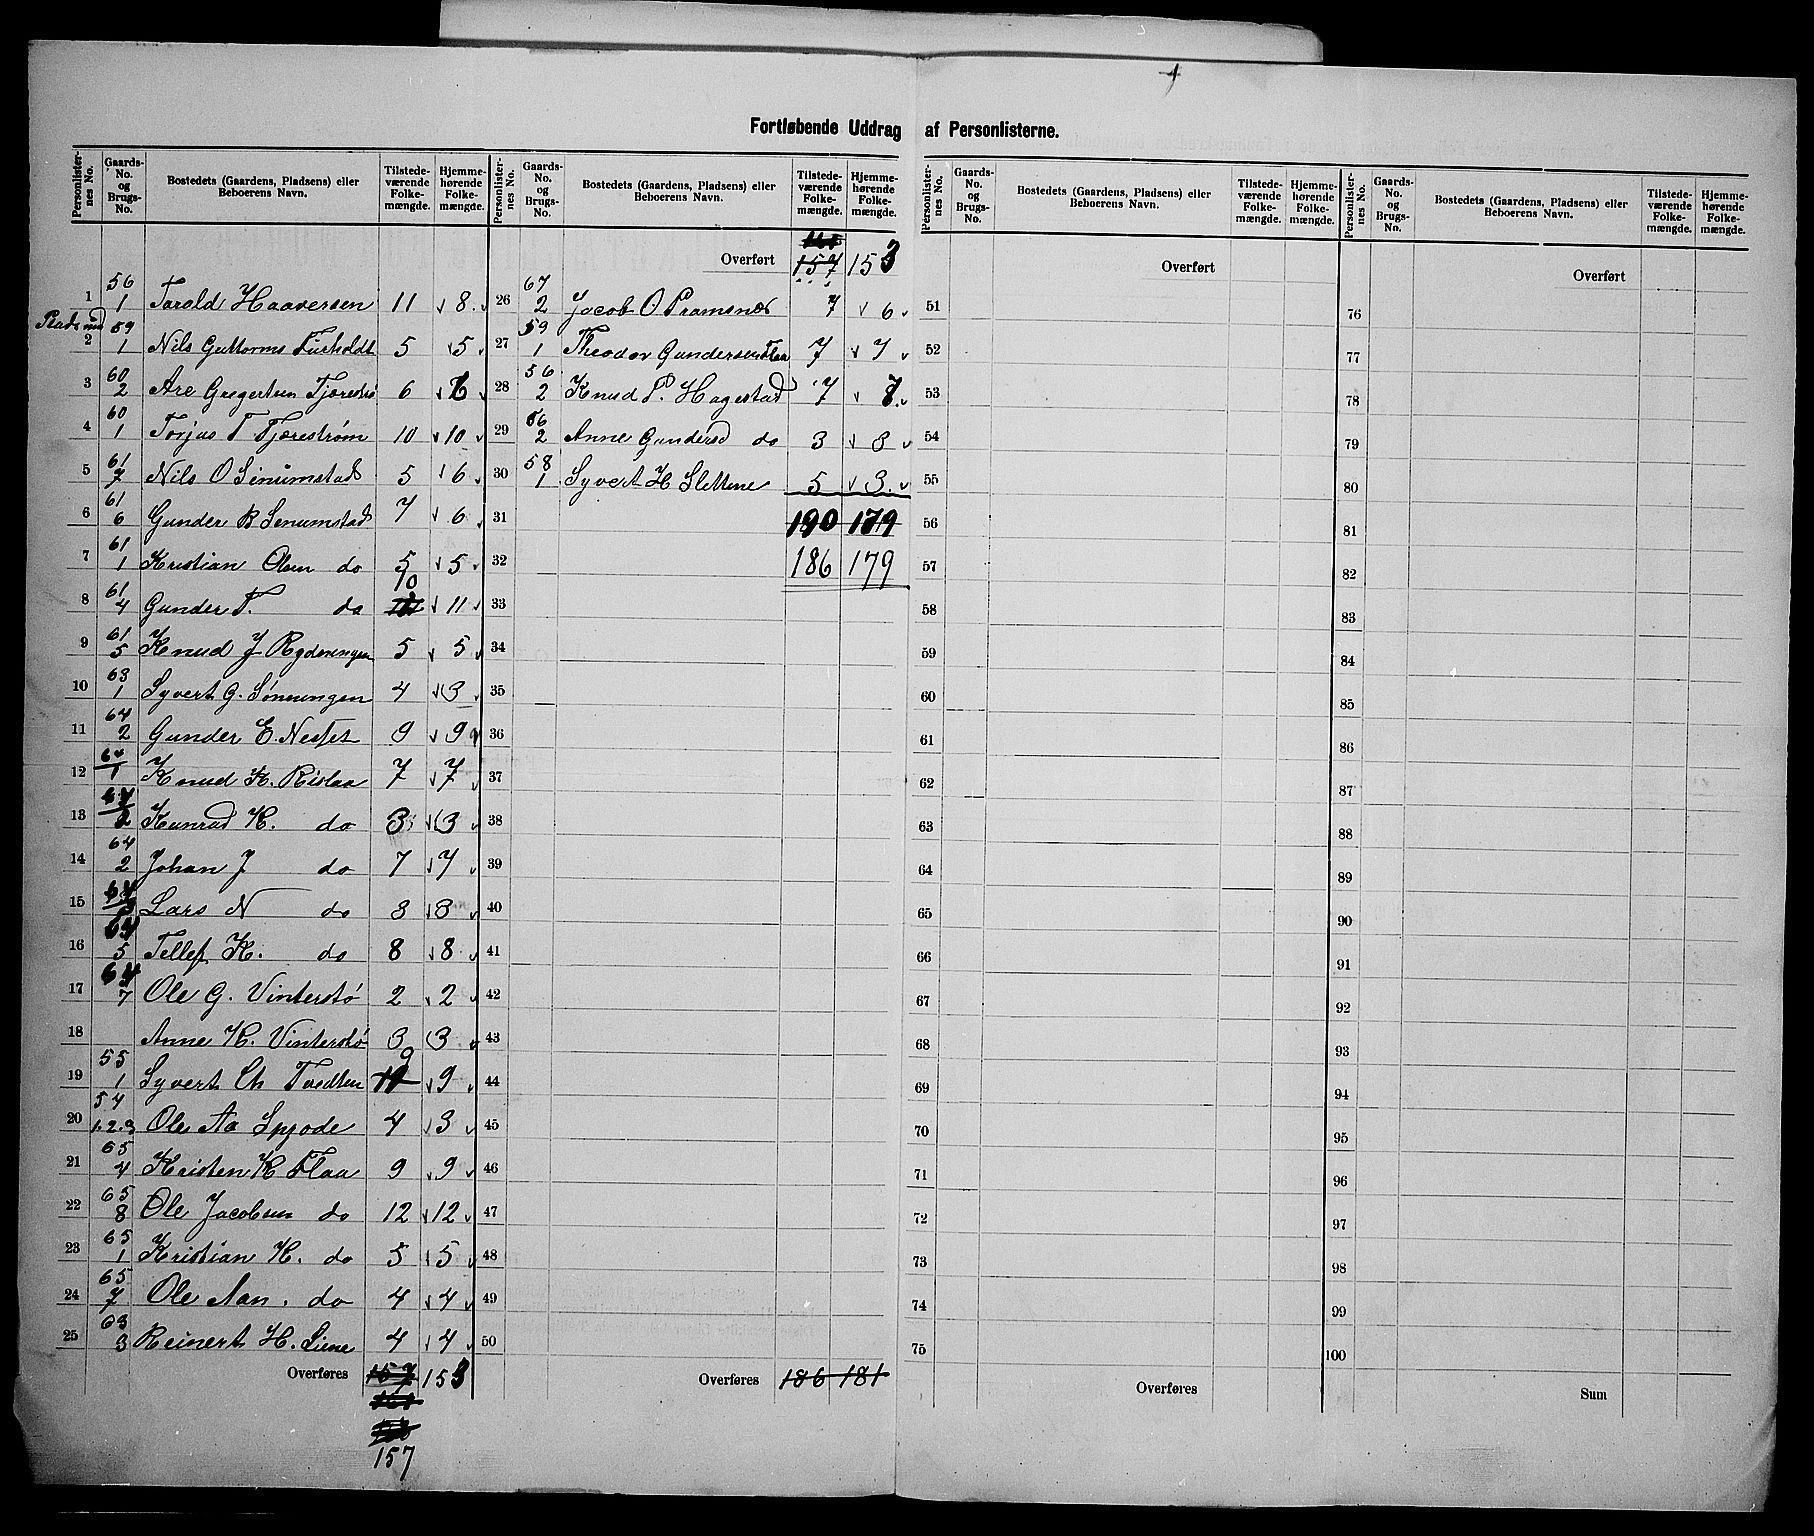 Fortløbende Uddrag af Personlisterne.
Personlister-nes No. | Gaards-No. og Brugs-No. | Bostedets (Gaardens, Pladsens) eller Beboerens Navn. | Tilstede-værende Folke-mængde. | Hjemme-hørende Folke-mængde.
1 56/1 Tarald Haaversen 11 8
2 59/1 Nils Guttorms Furholdt 5 5
3 60/2 Are Gregertsen 6 6
4 60/1 Torjus T Tjærestrøm 10 10
5 61/7 Nils O Senumstad 5 6
6 61/6 Gunder B Senumstad 7 6
7 61/1 Kristian Olsen do 5 5
8 61/4 Gunder T. do 10 11
9 61/5 Knud J Rydningen 5 5
10 63/1 Syvert G. Sønningen 4 3
11 64/2 Gunder E. Neset 9 9
12 64/1 Knud K. Rislaa 7 7
13 64/2 Kunrad K. do 3 3
14 64/2 Johan J do 7 7
15 64/3 Lars N do 3 3
16 64/5 Tellef K. do 8 8
17 64/7 Ole G. Vinterstø 2 2
18 Anne K. Vinterstø 3 3
19 55/1 Syvert Ch Tvedten 9 9
20 54/1.2.3 Ole Aa 4 3
21 65/4 Kristen K Flaa 9 9
22 65/8 Ole Jacobsen do 12 12
23 65/1 Kristian K. do 5 5
24 65/7 Ole Aan. do 4 4
25 63/3 Reinert H. Liene 4 4
Overføres 157 153
157
Personlister-nes No. | Gaards-No. og Brugs-No. | Bostedets (Gaardens, Pladsens) eller Beboerens Navn. | Tilstede-værende Folke-mængde. | Hjemme-hørende Folke-mængde.
Overført 157 153
26 67/2 Jacob O. Pramsnes 7 6
27 59/1 Theodor Gundersen Flaa 7 7
28 56/2 Knud T. Hagestad 7 7
29 56/2 Anne Gundersd do 3 3
30 58/1 Syvert H Slettene 5 3
31 190 179
32 186 179
33
34
35
36
37
38
39
40
41
42
43
44
45
46
47
48
49
50
Overføres 186 181
Personlister-nes No. | Gaards-No. og Brugs-No. | Bostedets (Gaardens, Pladsens) eller Beboerens Navn. | Tilstede-værende Folke-mængde. | Hjemme-hørende Folke-mængde.
Overført
51
52
53
54
55
56
57
58
59
60
61
62
63
64
65
66
67
68
69
70
71
72
73
74
75
Overføres
Personlister-nes No. | Gaards-No. og Brugs-No. | Bostedets (Gaardens, Pladsens) eller Beboerens Navn. | Tilstede-værende Folke-mængde. | Hjemme-hørende Folke-mængde.
Overført
76
77
78
79
80
81
82
83
84
85
86
87
88
89
90
91
92
93
94
95
96
97
98
99
100
Sum